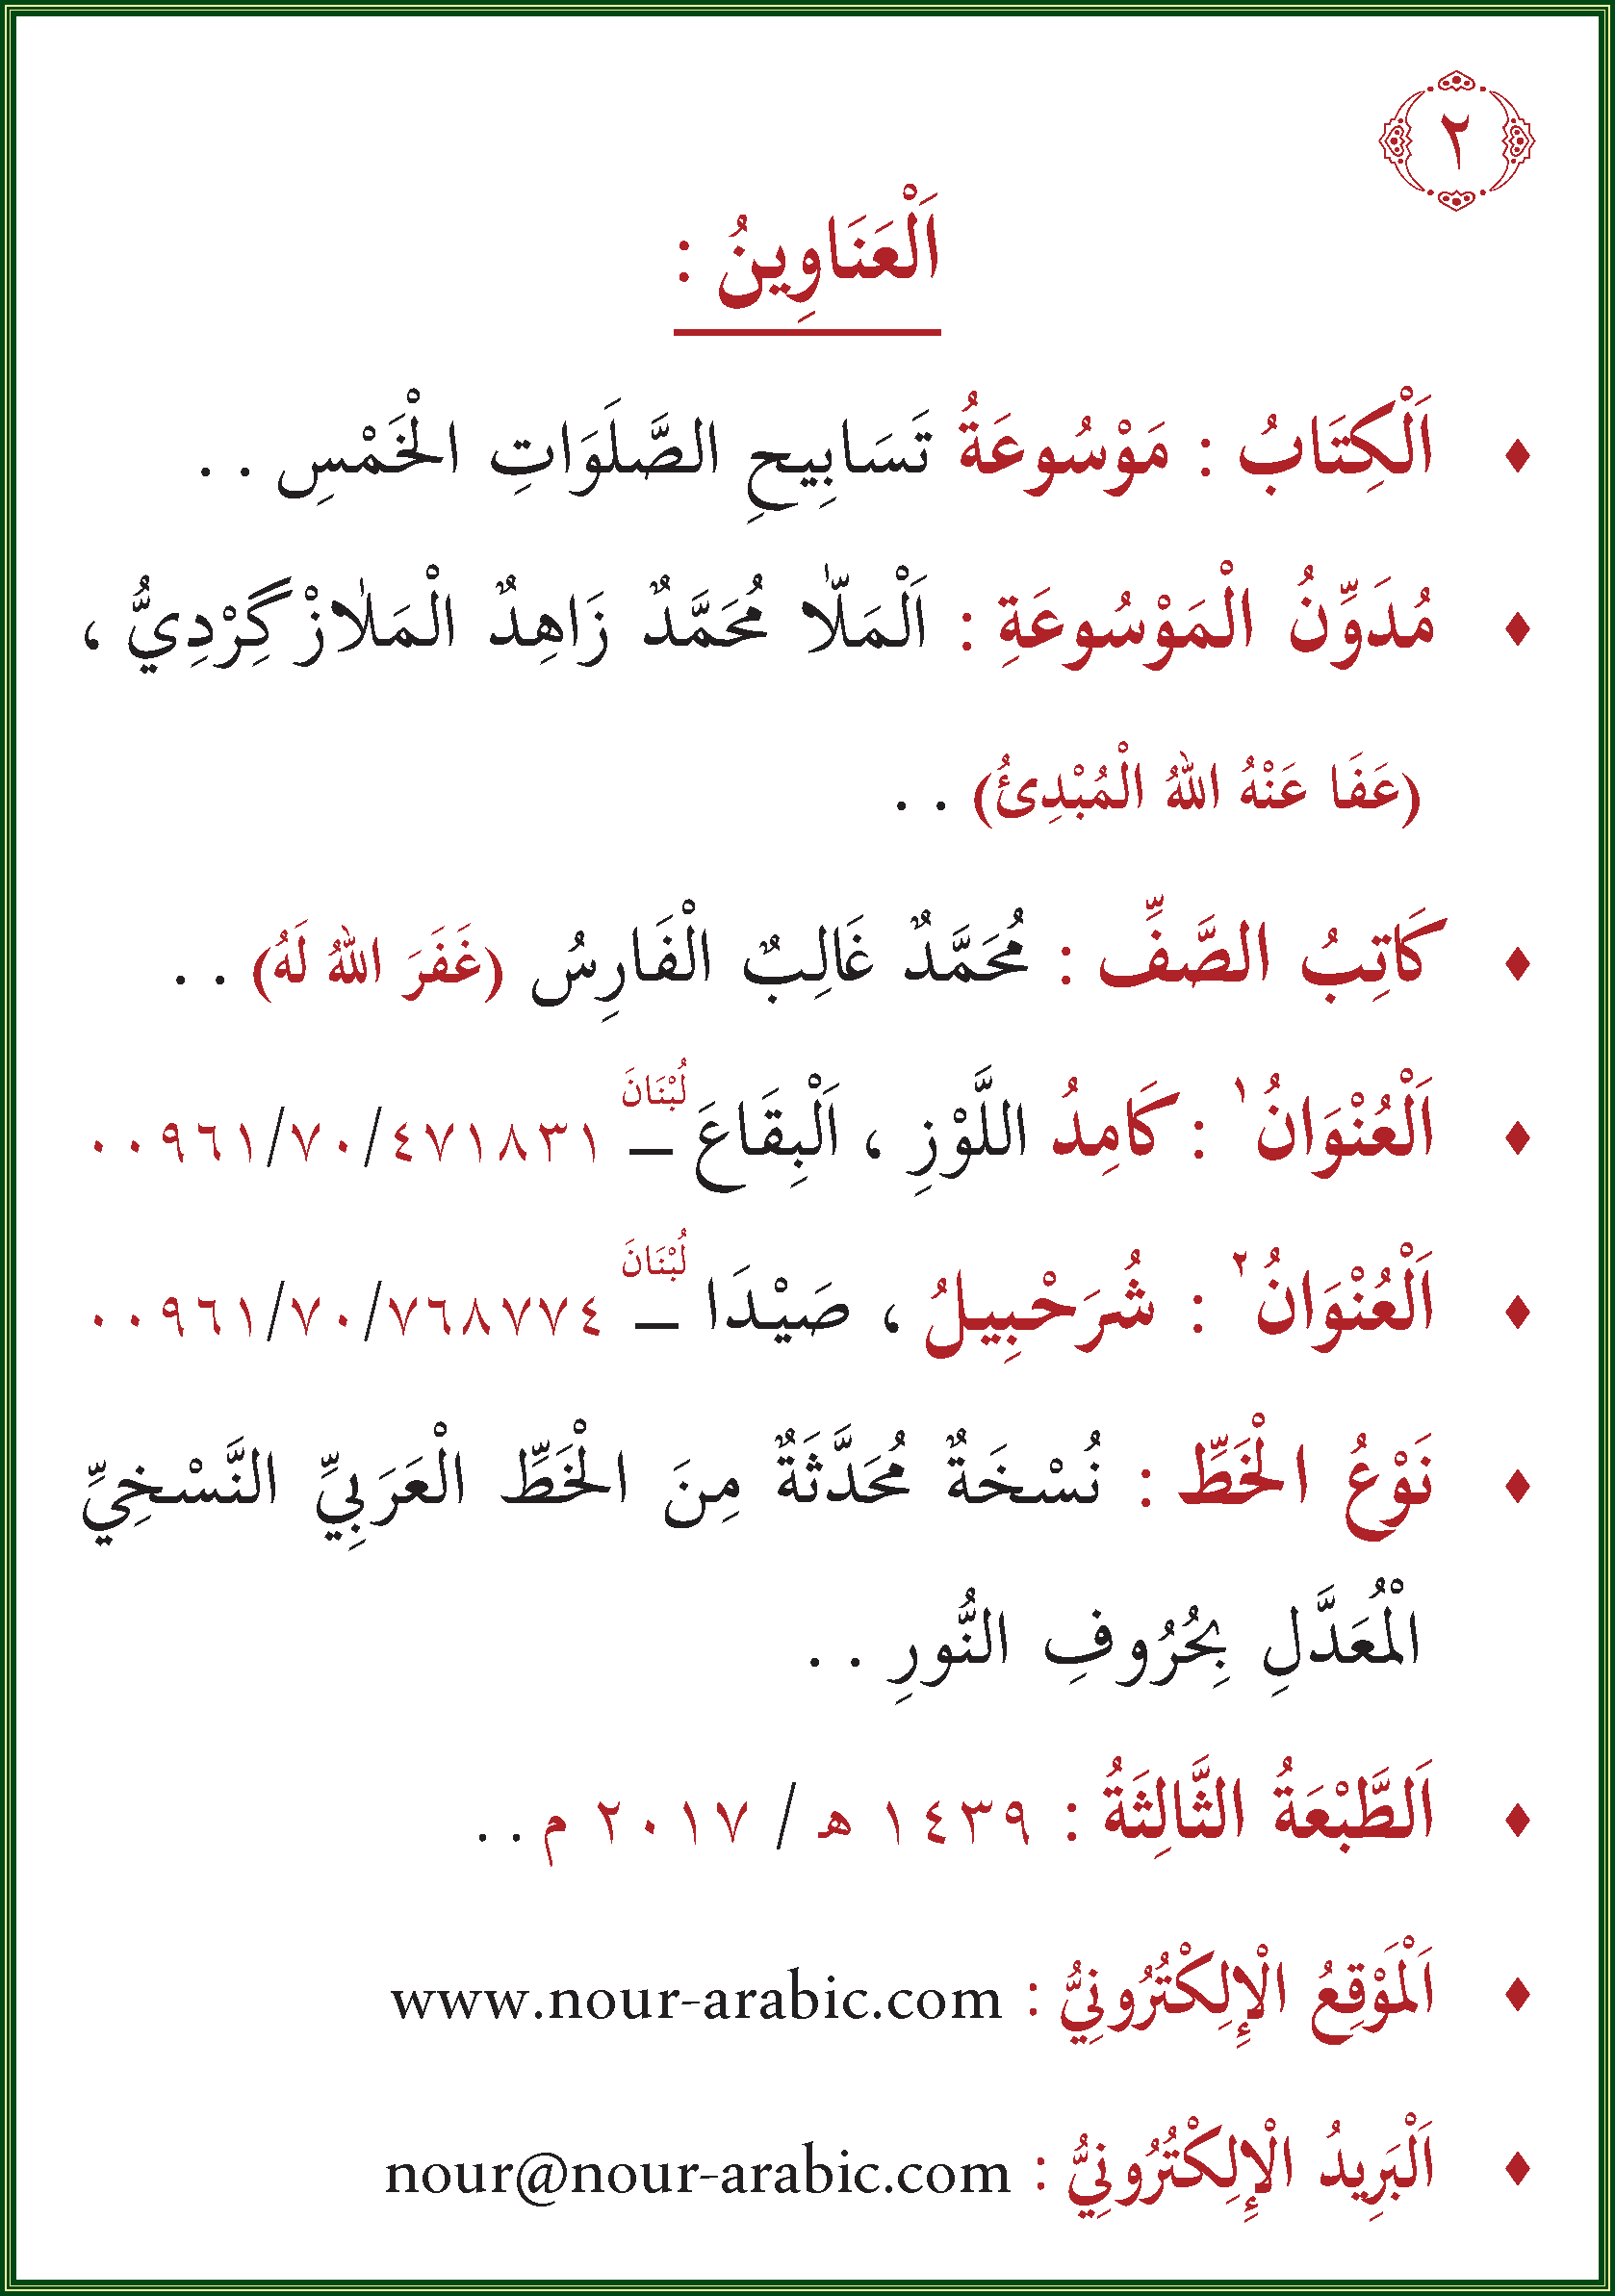 ٢
اَلْعَنَاوِينُ :
♦ اَلْكِتَابُ : مَوْسُوعَةُ تَسَابِيحِ الصَّلَوَاتِ الْخَمْسِ . .
♦ مُدَوِّنُ الْمَوْسُوعَةِ : اَلْمَلّٰا مُحَمَّدٌ زَاهِدٌ الْمَلٰازْگِرْدِيُّ ،
(عَفَا عَنْهُ اللهُ الْمُبْدِئُ) . .
♦ كَاتِبُ الصَّفِّ : مُحَمَّدٌ غَالِبٌ الْفَارِسُ (غَفَرَ اللهُ لَهُ) . .
♦ اَلْعُنْوَانُ ١ : كَامِدُ اللَّوْزِ ، اَلْبِقَاعَ – لُبْنَانَ ٠٠٩٦١/٧٠/٤٧١٨٣١
♦ اَلْعُنْوَانُ ٢ : شُرَحْبِيلُ ، صَيْدَا – لُبْنَانَ ٠٠٩٦١/٧٠/٧٦٨٧٧٤
♦ نَوْعُ الْخَطِّ : نُسْخَةٌ مُحَدَّثَةٌ مِنَ الْخَطِّ الْعَرَبِيِّ النَّسْخِيِّ
الْمُعَدَّلِ بِحُرُوفِ النُّورِ . .
♦ اَلطَّبْعَةُ الثَّالِثَةُ : ١٤٣٩ هـ / ٢٠١٧ م . .
♦ اَلْمَوْقِعُ الْإِلِكْتُرُونِيُّ : www.nour-arabic.com
♦ اَلْبَرِيدُ الْإِلِكْتُرُونِيُّ : nour@nour-arabic.com